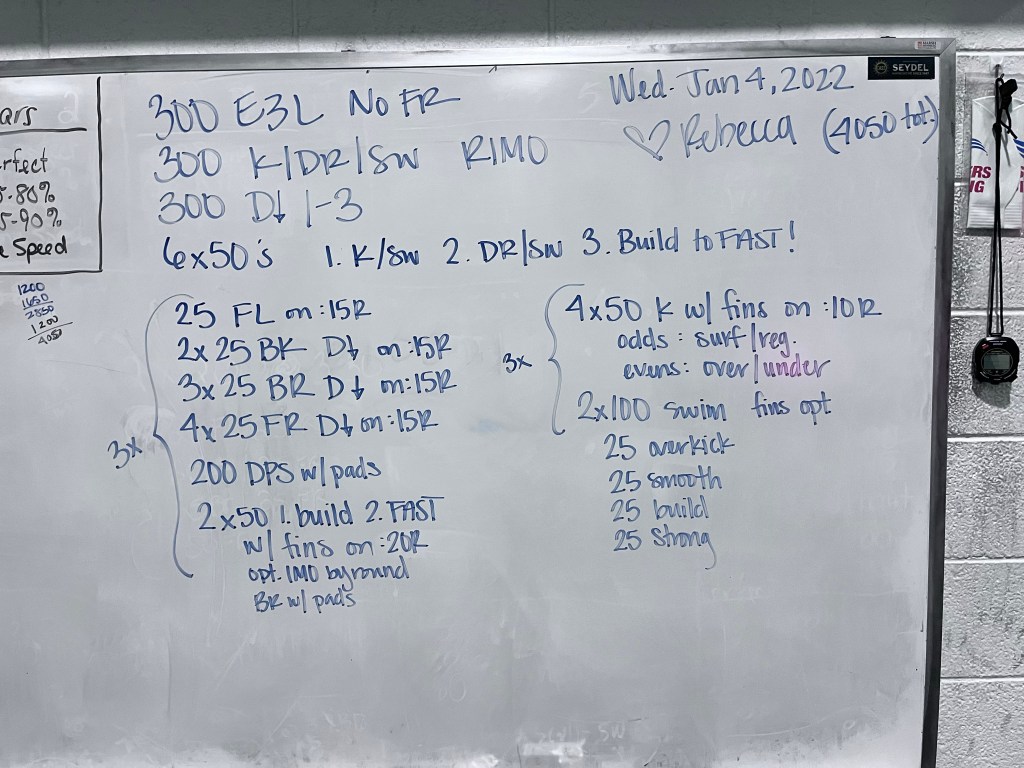 300 E3L No FR
300 K/DR/SW RIMO
300 D↓ 1-3
6x50's 1. K/SW 2. DR/SW 3. Build to FAST!
Wed. Jan 4, 2022
♡ Rebecca (4050 tot.)
SEYDEL
ars
rfect
5-80%
5-90%
e Speed
1200
1650
2850
1200
4050
3x
25 FL on :15R
2x25 BK D↓ on :15R
3x25 BR D↓ on :15R
4x25 FR D↓ on :15R
200 DPS w/ pads
2x50 1. build 2. FAST
w/ fins on :20R
opt. IMO by round
BR w/ pads
3x
4x50 K w/ fins on :10R
odds: surf/reg.
evens: over/under
2x100 swim fins opt
25 overkick
25 smooth
25 build
25 Strong
RS
IG